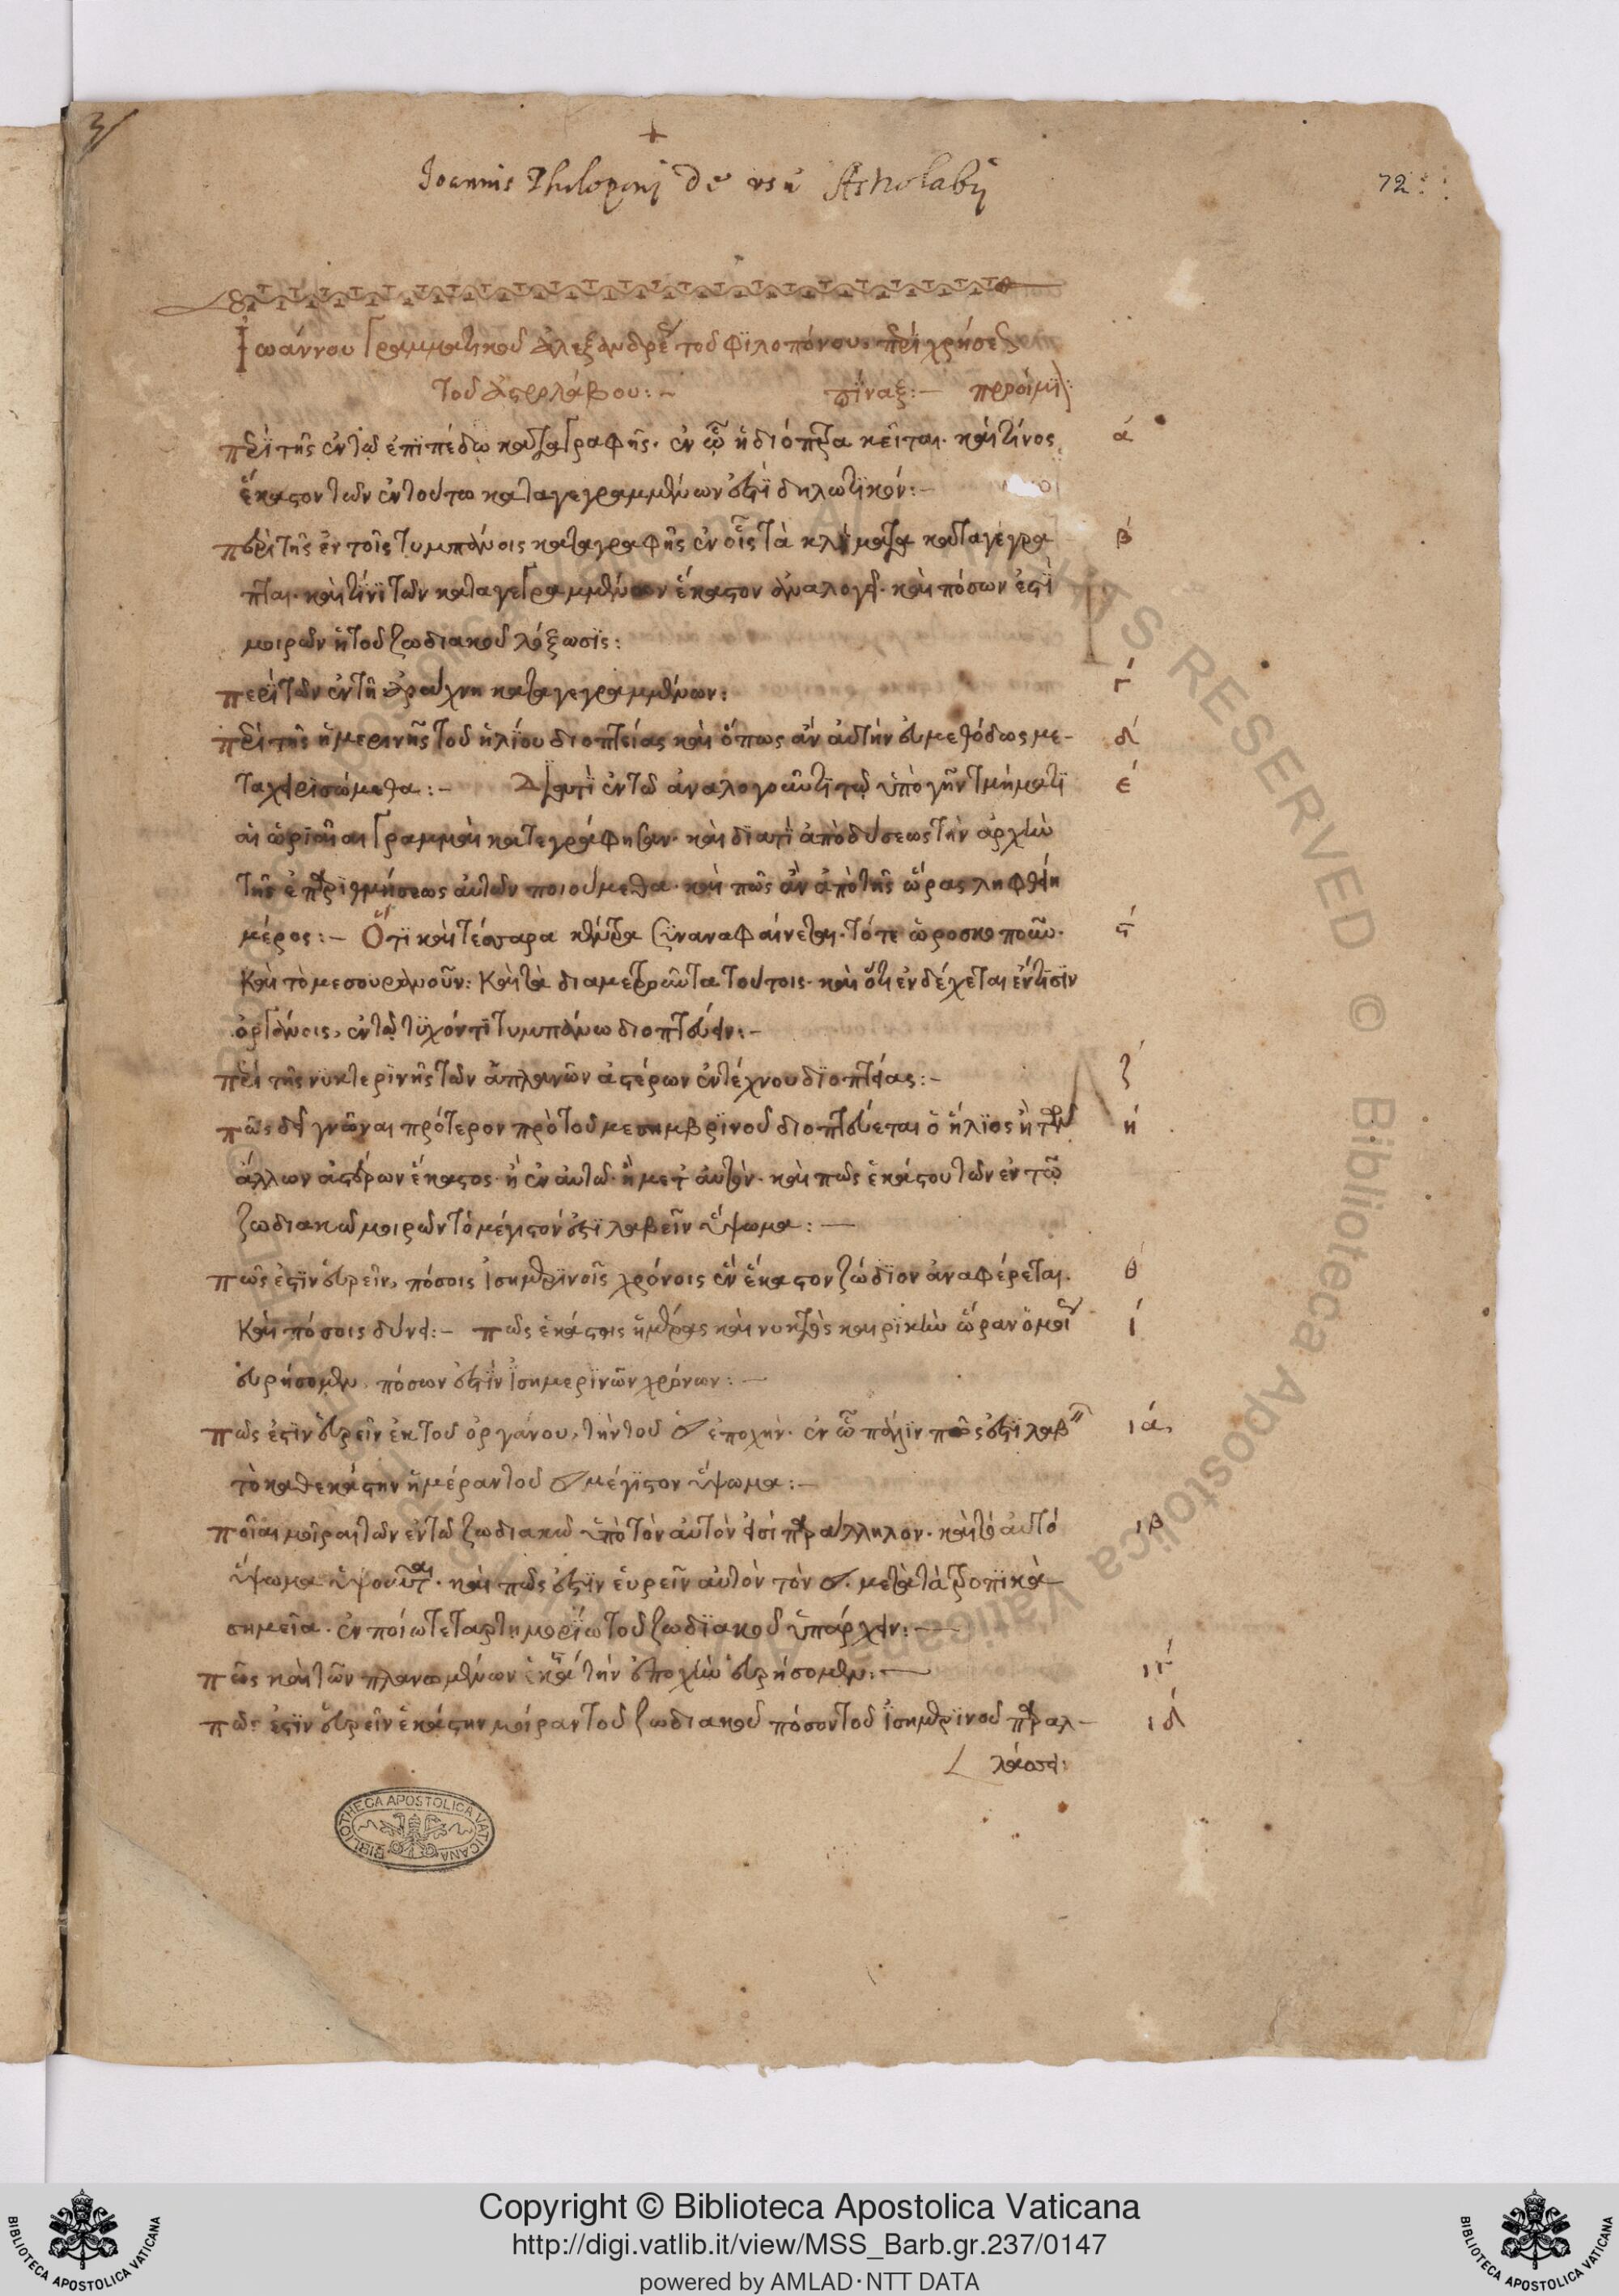 Joannis Philoponi De usu Astrolabij
72
Ἰωάννου Γραμματικοῦ Ἀλεξανδρέως τοῦ Φιλοπόνου. περὶ χρήσεως
τοῦ ἀστρολάβου:~ πίναξ:– προοίμιον
περὶ τῆς ἐν τῷ ἐπιπέδω καταγραφῆς. ἐν ᾧ ἡ διόπτρα κεῖται. καὶ τίνος ά
ἕκαστον τῶν ἐν τούτω καταγεγραμμένων ἐστὶ δηλωτικόν:–
περὶ τῆς ἐν τοῖς τυμπάνοις καταγραφῆς ἐν οἷς τὰ κλίματα καταγέγρα β́
πται. καὶ τίνι τῶν καταγεγραμμένων ἕκαστον ἀναλογεῖ. καὶ πόσων ἐστὶ
μοιρῶν ἡ τοῦ ζωδιακοῦ λόξωσις:
περὶ τῶν ἐν τῇ ἀράχνη καταγεγραμμένων: γ́
περὶ τῆς ἡμερινῆς τοῦ ἡλίου διοπτείας καὶ ὅπως ἂν αὐτὴν εὐμεθόδως με- δ́
ταχειρισώμεθα:– Διατὶ ἐν τῶ ἀναλογοῦντι τῷ ὑπὸ γῆν τμήματι έ
αἱ ὡριαῖαι γραμμαὶ κατεγράφησαν. καὶ διατὶ ἀπὸ δύσεως τὴν ἀρχὴν
τῆς ἐπαριθμήσεως αὐτῶν ποιούμεθα. καὶ πῶς ἂν ἀπὸ τῆς ὥρας ληφθείη
μέρος:– Ὅτι καὶ τέσσαρα κέντρα συναναφαίνεται. τό τε ὡροσκοποῦν. ς́
Καὶ τὸ μεσουρανοῦν: Καὶ τὰ διαμετροῦντα τούτοις. καὶ ὅτι ἐνδέχεται ἔν τισιν
ὀργάνοις, ἐν τῷ τυχόντι τυμπάνω διοπτεύειν:–
περὶ τῆς νυκτερινῆς τῶν ἀπλανῶν ἀστέρων ἐντέχνου διοπτείας:– ζ́
πῶς δεῖ γνῶναι πρότερον πρὸ τοῦ μεσημβρινοῦ διοπτεύεται ὁ ἥλιος ἢ τῶν ή
ἄλλων ἀστέρων ἕκαστος. ἢ ἐν αὐτῶ. ἢ μετ' αὐτόν. καὶ πῶς ἑκάστου τῶν ἐν τῷ
ζωδιακῶ μοιρῶν τὸ μέγιστόν ἐστι λαβεῖν ὕψωμα:—
πῶς ἐστὶν εὑρεῖν, πόσοις ἰσημερινοῖς χρόνοις ἓν ἕκαστον ζώδιον ἀναφέρεται. θ́
Καὶ πόσοις δύνει:– πῶς ἑκάστης ἡμέρας καὶ νυκτὸς καιρικὴν ὥραν ί
εὑρήσομεν, πόσων ἐστὶν ἰσημερινῶν χρόνων:—
πῶς ἐστὶν εὑρεῖν ἐκ τοῦ ὀργάνου, τὴν τοῦ ☌ ἐποχήν. ἐν ᾧ πάλιν πῶς ἐστι λαβεῖν ιά
τὸ καθεκάστην ἡμέραν τοῦ ☌ μέγιστον ὕψωμα:–
ποῖαι μοῖραι τῶν ἐν τῶ ζωδιακῶ ὑπὸ τὸν αὐτὸν εἰσὶ παράλληλον. καὶ τὸ αὐτὸ ιβ
ὕψωμα ὑψοῦνται. καὶ πῶς ἐστὶν εὑρεῖν αὐτὸν τὸν ☌. μετὰ τὰ τροπικὰ
σημεῖα. ἐν ποίω τεταρτημορίω τοῦ ζωδιακοῦ ὑπάρχειν:—
πῶς καὶ τῶν πλανωμένων ἑκάστου τὴν ἐποχὴν εὑρήσομεν:— ιγ́
πῶς ἐστὶν εὑρεῖν ἑκάστην μοῖραν τοῦ ζωδιακοῦ πόσον τοῦ ἰσημερινοῦ παραλ– ιδ́
λάσσει:
BIBLIOTHECA APOSTOLICA VATICANA
Copyright © Biblioteca Apostolica Vaticana
http://digi.vatlib.it/view/MSS_Barb.gr.237/0147
powered by AMLAD·NTT DATA